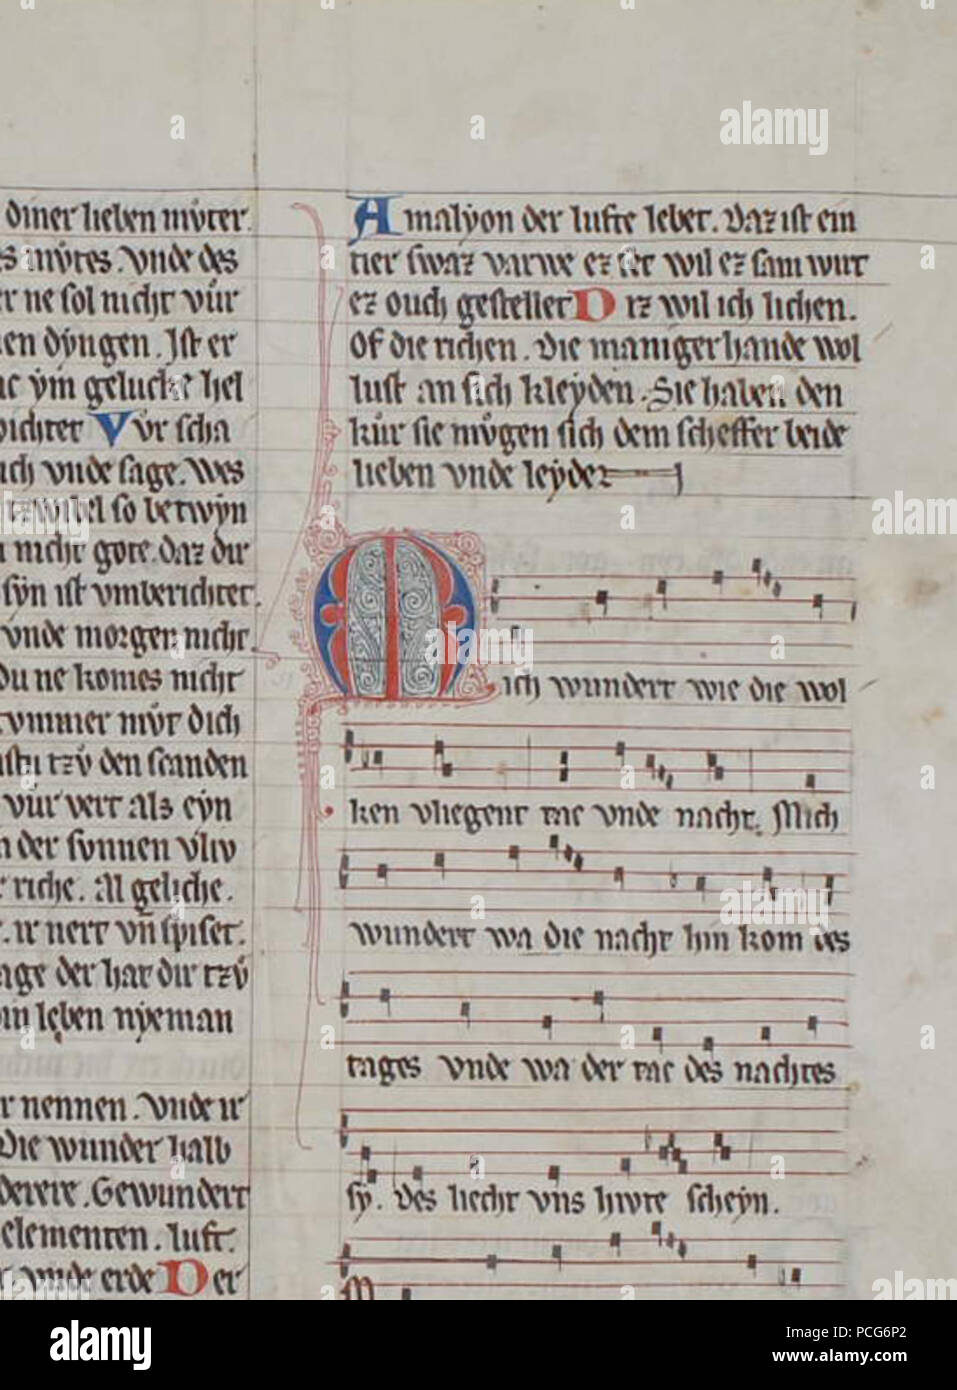 diner lieben mv̊ter.
mv̊tes. vnde des
er ne sol nicht vůr
en dyngen. Jst er
ym gelucke hel
Vv̊r scha
ich vnde sage. wes
tzwibel so betwyn
nicht gote. daz dir
syn ist vmberichtet.
vnde morgen nicht
Du ne komes nicht
mv̊t dich
tzv̊ den scanden
vůr vert als eyn
der svnnen vliv
riche. Al geliche.
ir nert vn̄ spiset.
der hat dir tzv̊
leben nyeman
nennen. vnde ir
Die wunder halb
Gewundert
elementen. luft.
vnde erde Der
Amalyon der lufte lebet. Daz ist ein
tier swaz varwe ez set wil ez sam wirt
ez ouch gestellet Diz wil ich lichen.
Of die richen. Die maniger hande wol
lust an sich kleyden. Sie haben den
kůr sie mv̊gen sich dem scheffer beide
lieben vnde leyden
Mich wundert wie die wol
ken vliegent tac vnde nacht. Mich
wundert wa die nacht hin kom des
tages vnde wa der tac des nachtes
sy. des liecht vns hivte scheyn.
M
alamy
a
alamy stock photo
alamy
PCG6P2
www.alamy.com